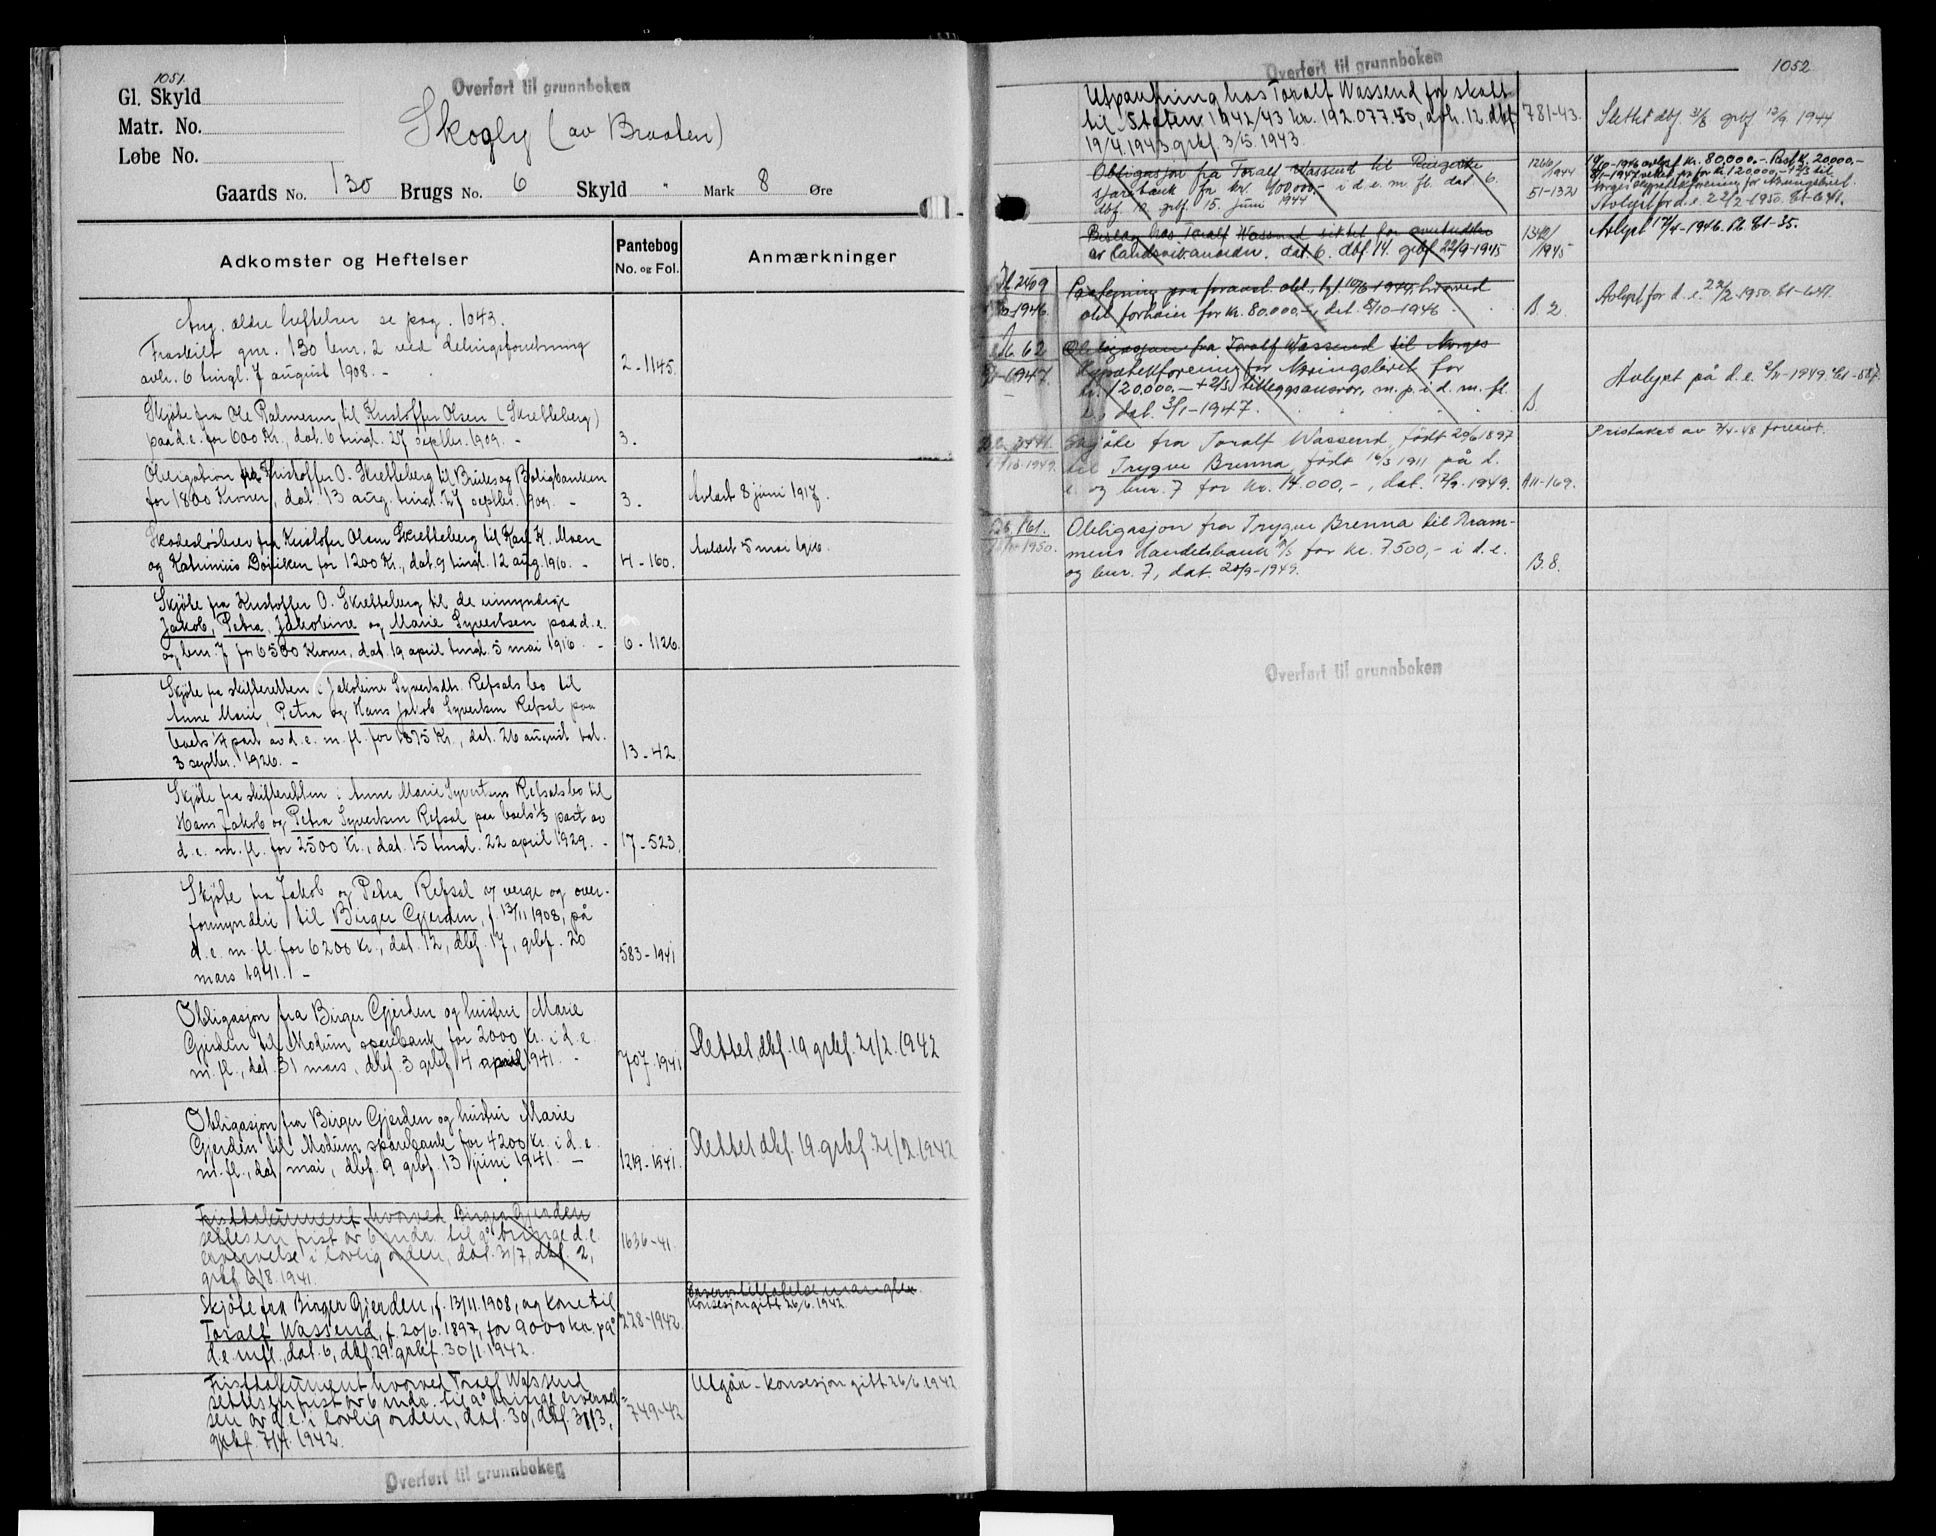 1051.
Gl. Skyld
Matr. No.
Løbe No.
Overført til grunnboken
Skogly (av Braaten)
Gaards No. 130 Brugs No. 6 Skyld " Mark 8 Øre
Adkomster og Heftelser
Pantebog
No. og Fol.
Anmærkninger
Ang. ældre heftelser se pag. 1043.
Fraskilt gnr. 130 bnr. 2 ved delingsforretning
avh. 6 tingl. 7 august 1908. -
2-1145.
Skjøte fra Ole Palmesen til Kristoffer Olsen (Skretteberg)
paa d.e. for 600 Kr., dat. 6 tingl. 27 septbr. 1909. -
3.
Obligation fra Kristoffer O. Skretteberg til Bruks og Boligbanken
for 1800 Kroner, dat. 13 aug. tingl. 27 septbr. 1909. -
3.
Avlæst 8 juni 1917.
Skadesløsbrev fra Kristofer Olsen Skretteberg til Karl K. Moen
og Katrinius Döviken for 1200 Kr., dat. 9 tingl. 12 aug. 1910. -
4-160.
Avlæst 5 mai 1916.
Skjøte fra Kristoffer O. Skretteberg til de umyndige
Jakob, Petra, Jakobine og Marie Syvertsen paa d.e.
og bnr. 7 for 6500 Kroner, dat. 19 april tingl. 5 mai 1916. -
6-1126.
Skjøte fra skifteretten i Jakobine Syvertsdtr. Refsals bo til
Anne Marie, Petra og Hans Jakob Syvertsen Refsal paa
boets 1/4 part av d.e. m. fl. for 1875 Kr., dat. 26 august tgl.
3 septbr. 1926. -
13-42.
Skjøte fra skifteretten i Anne Marie Syvertsens Refsals bo til
Hans Jakob og Petra Syvertsen Refsal paa boets 1/3 part av
d.e. m. fl. for 2500 Kr., dat. 15 tingl. 22 april 1929. -
17-523.
Skjøte fra Jakob og Petra Refsal v/ verge og over-
formynderi til Birger Gjerden, f. 13/11 1908, på
d.e. m. fl. for 6200 kr., dat. 12, dbf. 17, grbf. 20
mars 1941. -
583-1941
Obligasjon fra Birger Gjerden og hustru Marie
Gjerden til Modum sparebank for 2000 kr. i d.e.
m. fl., dat. 31 mars, dbf. 3 grbf. 4 april 1941. -
707-1941
Slettet dbf. 19 grbf. 21/2. 1942
Obligasjon fra Birger Gjerden og hustru Marie
Gjerden til Modum sparebank for 4200 kr. i d.e.
m. fl., dat. mai, dbf. 9 grbf. 13 juni 1941. -
1219-1941.
Slettet dbf. 19. grbf. 21/2. 1942
Fristdokument hvorved Birger Gjerden
settes en frist av 6 mdr. til å bringe d.e.
ervervelse i lovlig orden, dat. 31/7, dbf. 2,
grbf. 6/8. 1941.
1636-41.
Skjøte fra Birger Gjerden, f. 13/11. 1908, og kone til
Toralf Wassend, f. 20/6. 1897, for 9000 kr. på
d.e. mfl., dat. 6, dbf. 29. grbf. 30/1. 1942.
228-1942.
konsesjon gitt 26/6. 1942.
Fristdokument hvorved Toralf Wassend
settes en frist av 6 mdr. til å bringe ervervel-
sen av d.e. i lovlig orden, dat. 30, dbf. 31/3,
grbf. 7/4. 1942.
749-42
Utgår - konsesjon gitt 26/6 1942
Overført til grunnboken
Overført til grunnboken
1052
Utpantning hos Toralf Wassend for skatt
til Staten 1942/43 kr. 192.077.50, avh. 12. dbf.
19/4. 1943 grbf. 3/5. 1943.
781-43.
Slettet dbf. 31/8 grbf 12/9 1944
Obligasjon fra Toralf Wassend til Ringerike
sparebank for kr. 100000,- i d.e. m. fl. dat 6.
dbf. 12. grbf. 15. juni 1944
1266/1944
51-132
Avlyst for d.e. 22/2-1950. Bl-641.
Beslag hos Toralf Wassend siktet for overtredelse
av landssvikanorden. dat 6. dbf. 14. grbf 22/9-1945
1342/1945
Avlyst 17/4-1946. Bl-35.
2409
1946.
obl. forhøies for kr. 80.000,-, dat. 8/10-1946
B. 2.
Avlyst for d.e. 22/2-1950. Bl-641.
62
1947.
Obligasjon fra Toralf Wassend til Norges
Hypotekforening for Næringslivet for
kr. 120.000.- + 2/5) tilleggsansvar, m. p. i d. m. fl.
e., dat. 3/1-1947.
B.
Avlyst på d.e.
3441.
1949.
Skjøte fra Toralf Wassend, født 20/6 1897
til Trygve Brenna, født 16/3 1911 på d.
e. og bnr. 7 for kr. 14.000,-, dat. 12/9-1949.
A11-169.
Pristakst av 7/4-48 forevist.
161.
1950.
Obligasjon fra Trygve Brenna til Dram-
mens Handelsbank A/S for kr. 7.500,- i d.e.
og bnr. 7, dat. 20/9-1949.
B.8.
Overført til grunnboken